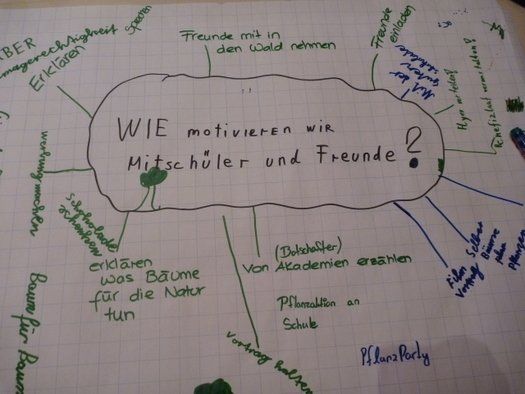 ÜBER
Klimagerechtigkeit
Erklären
Spenden
Freunde mit in
den Wald nehmen
Freunde
einladen
Mit der
WIE motivieren wir
Mitschüler und Freunde?
werbung machen
Schokolade
Schenken
erklären
was Bäume
für die Natur
tun
(Botschafter)
Von Akademien erzählen
Pflanzaktion an
Schule
Vortrag halten
Film
Vortrag
Selber
Bäume
Pflanzen
PflanzParty
Baum für Baum